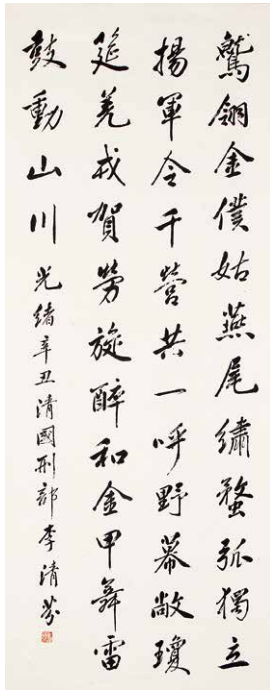 鷲翎金僕姑燕尾繡蝥弧獨立
揚軍令千營共一呼野幕敞瓊
筵羌戎賀勞旋醉和金甲舞雷
鼓動山川光緒辛丑清國刑部李清芬